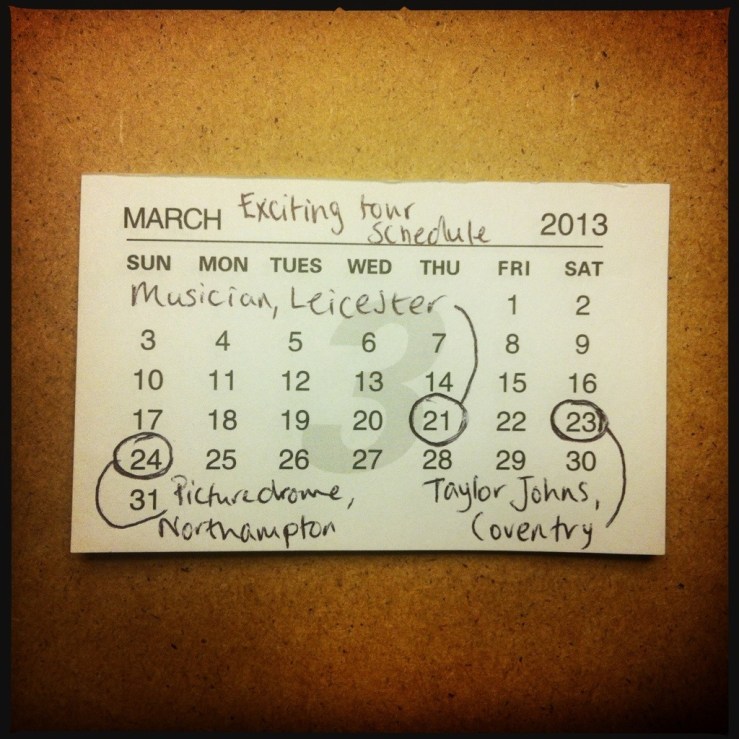 MARCH Exciting tour 2013
Schedule
SUN MON TUES WED THU FRI SAT
Musician, Leicester 1 2
3 4 5 6 7 8 9
10 11 12 13 14 15 16
17 18 19 20 21 22 23
24 25 26 27 28 29 30
31 Picturedrome, Taylor Johns,
Northampton Coventry
3